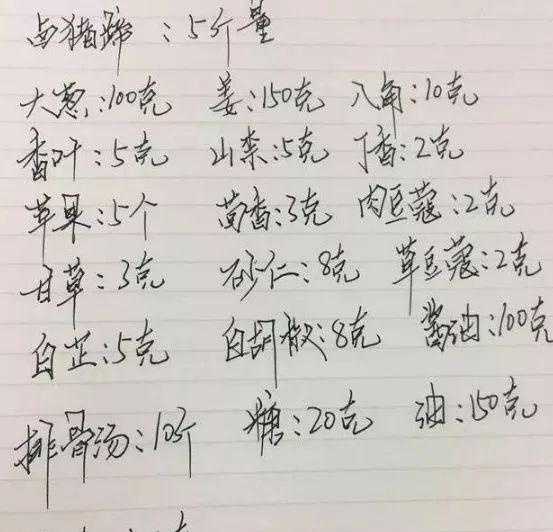 卤猪蹄：5斤量
大葱：100克 姜：150克 八角：10克
香叶：5克 山柰：5克 丁香：2克
草果：5个 茴香：3克 肉豆蔻：2克
甘草：3克 砂仁：8克 草豆蔻：2克
白芷：5克 白胡椒：8克 酱油：100克
排骨汤：10斤 糖：20克 油：150克